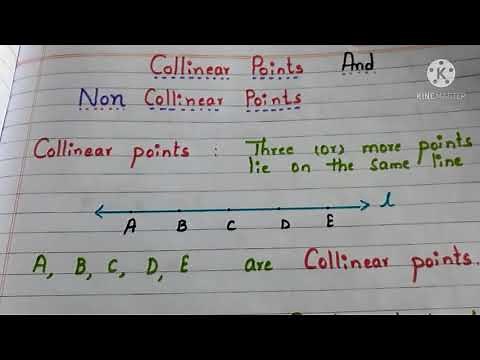 Collinear Points And
Non Collinear Points
K
KINEMASTER
Collinear points : Three (or) more points
lie on the same line
l
A B C D E
A, B, C, D, E are Collinear points.